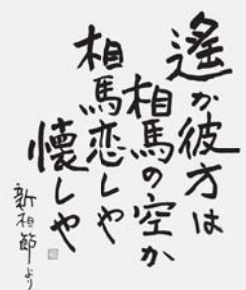 遙か彼方は
相馬の空か
相馬恋しや
懐しや
新相節より